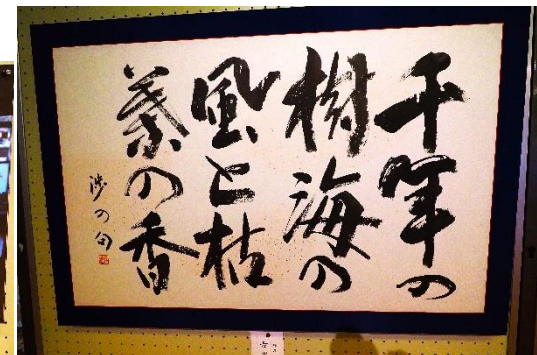 千年の
樹海の
風と枯
葉の香
渉の句